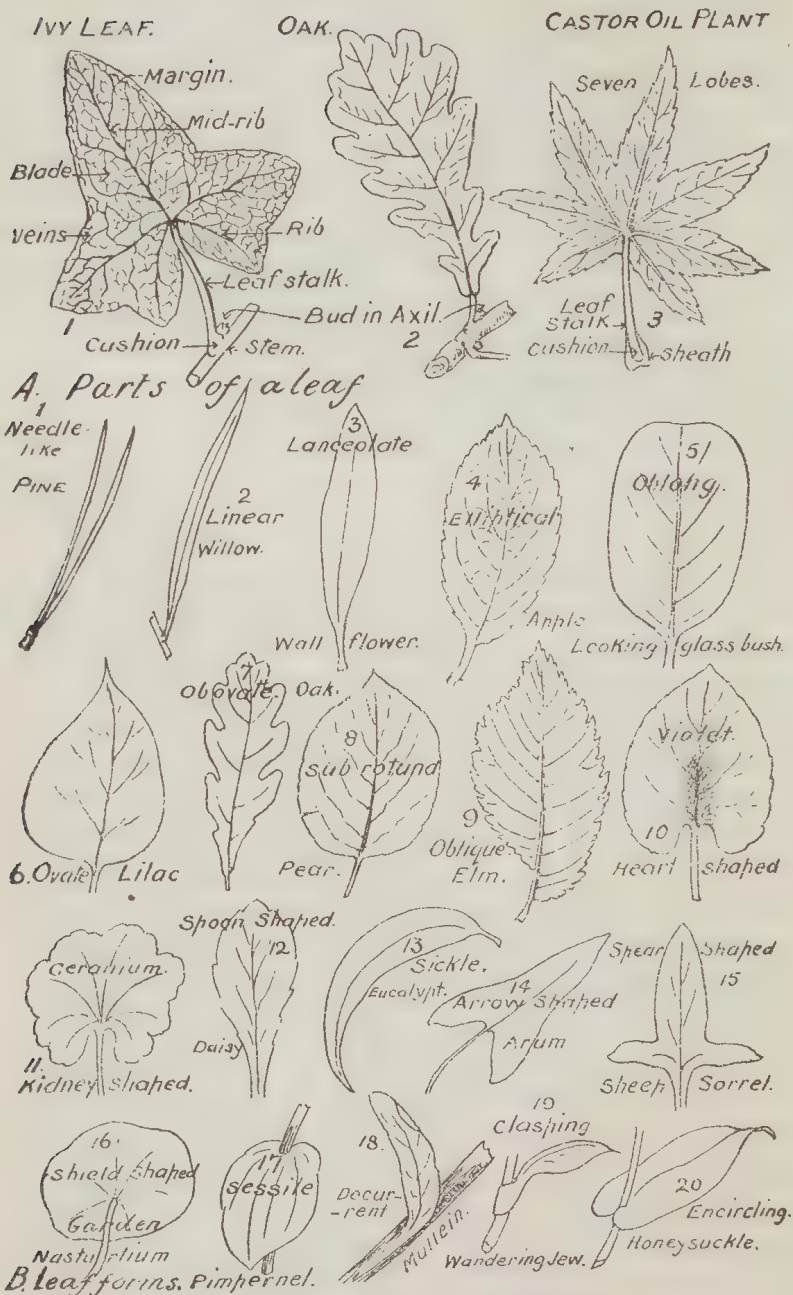 IVY LEAF.
OAK.
CASTOR OIL PLANT
Margin.
Mid-rib
Blade
Veins
Rib
Leaf stalk.
Bud in Axil.
Cushion
Stem.
1
2
Seven Lobes.
Leaf
Stalk
3
Cushion
Sheath
A. Parts of a leaf
1
Needle-
like
PINE
2
Linear
Willow.
3
Lanceolate
Wall flower.
4
Elliptical
Apple
5
Oblong.
Looking glass bush.
6. Ovate Lilac
7
Obovate. Oak.
8
Sub rotund
Pear.
9
Oblique
Elm.
Violet.
10
Heart shaped
Geranium.
11.
Kidney shaped.
Spoon Shaped.
12
Daisy
13
Sickle.
Eucalypt.
14
Arrow Shaped
Arum
Spear Shaped
15
Sheep Sorrel.
16.
Shield Shaped
Garden
Nasturtium
17
Sessile
Pimpernel.
18.
Decur-
-rent
Mullein.
19
Clasping
Wandering Jew.
20
Encircling.
Honeysuckle.
B. Leaf forms.